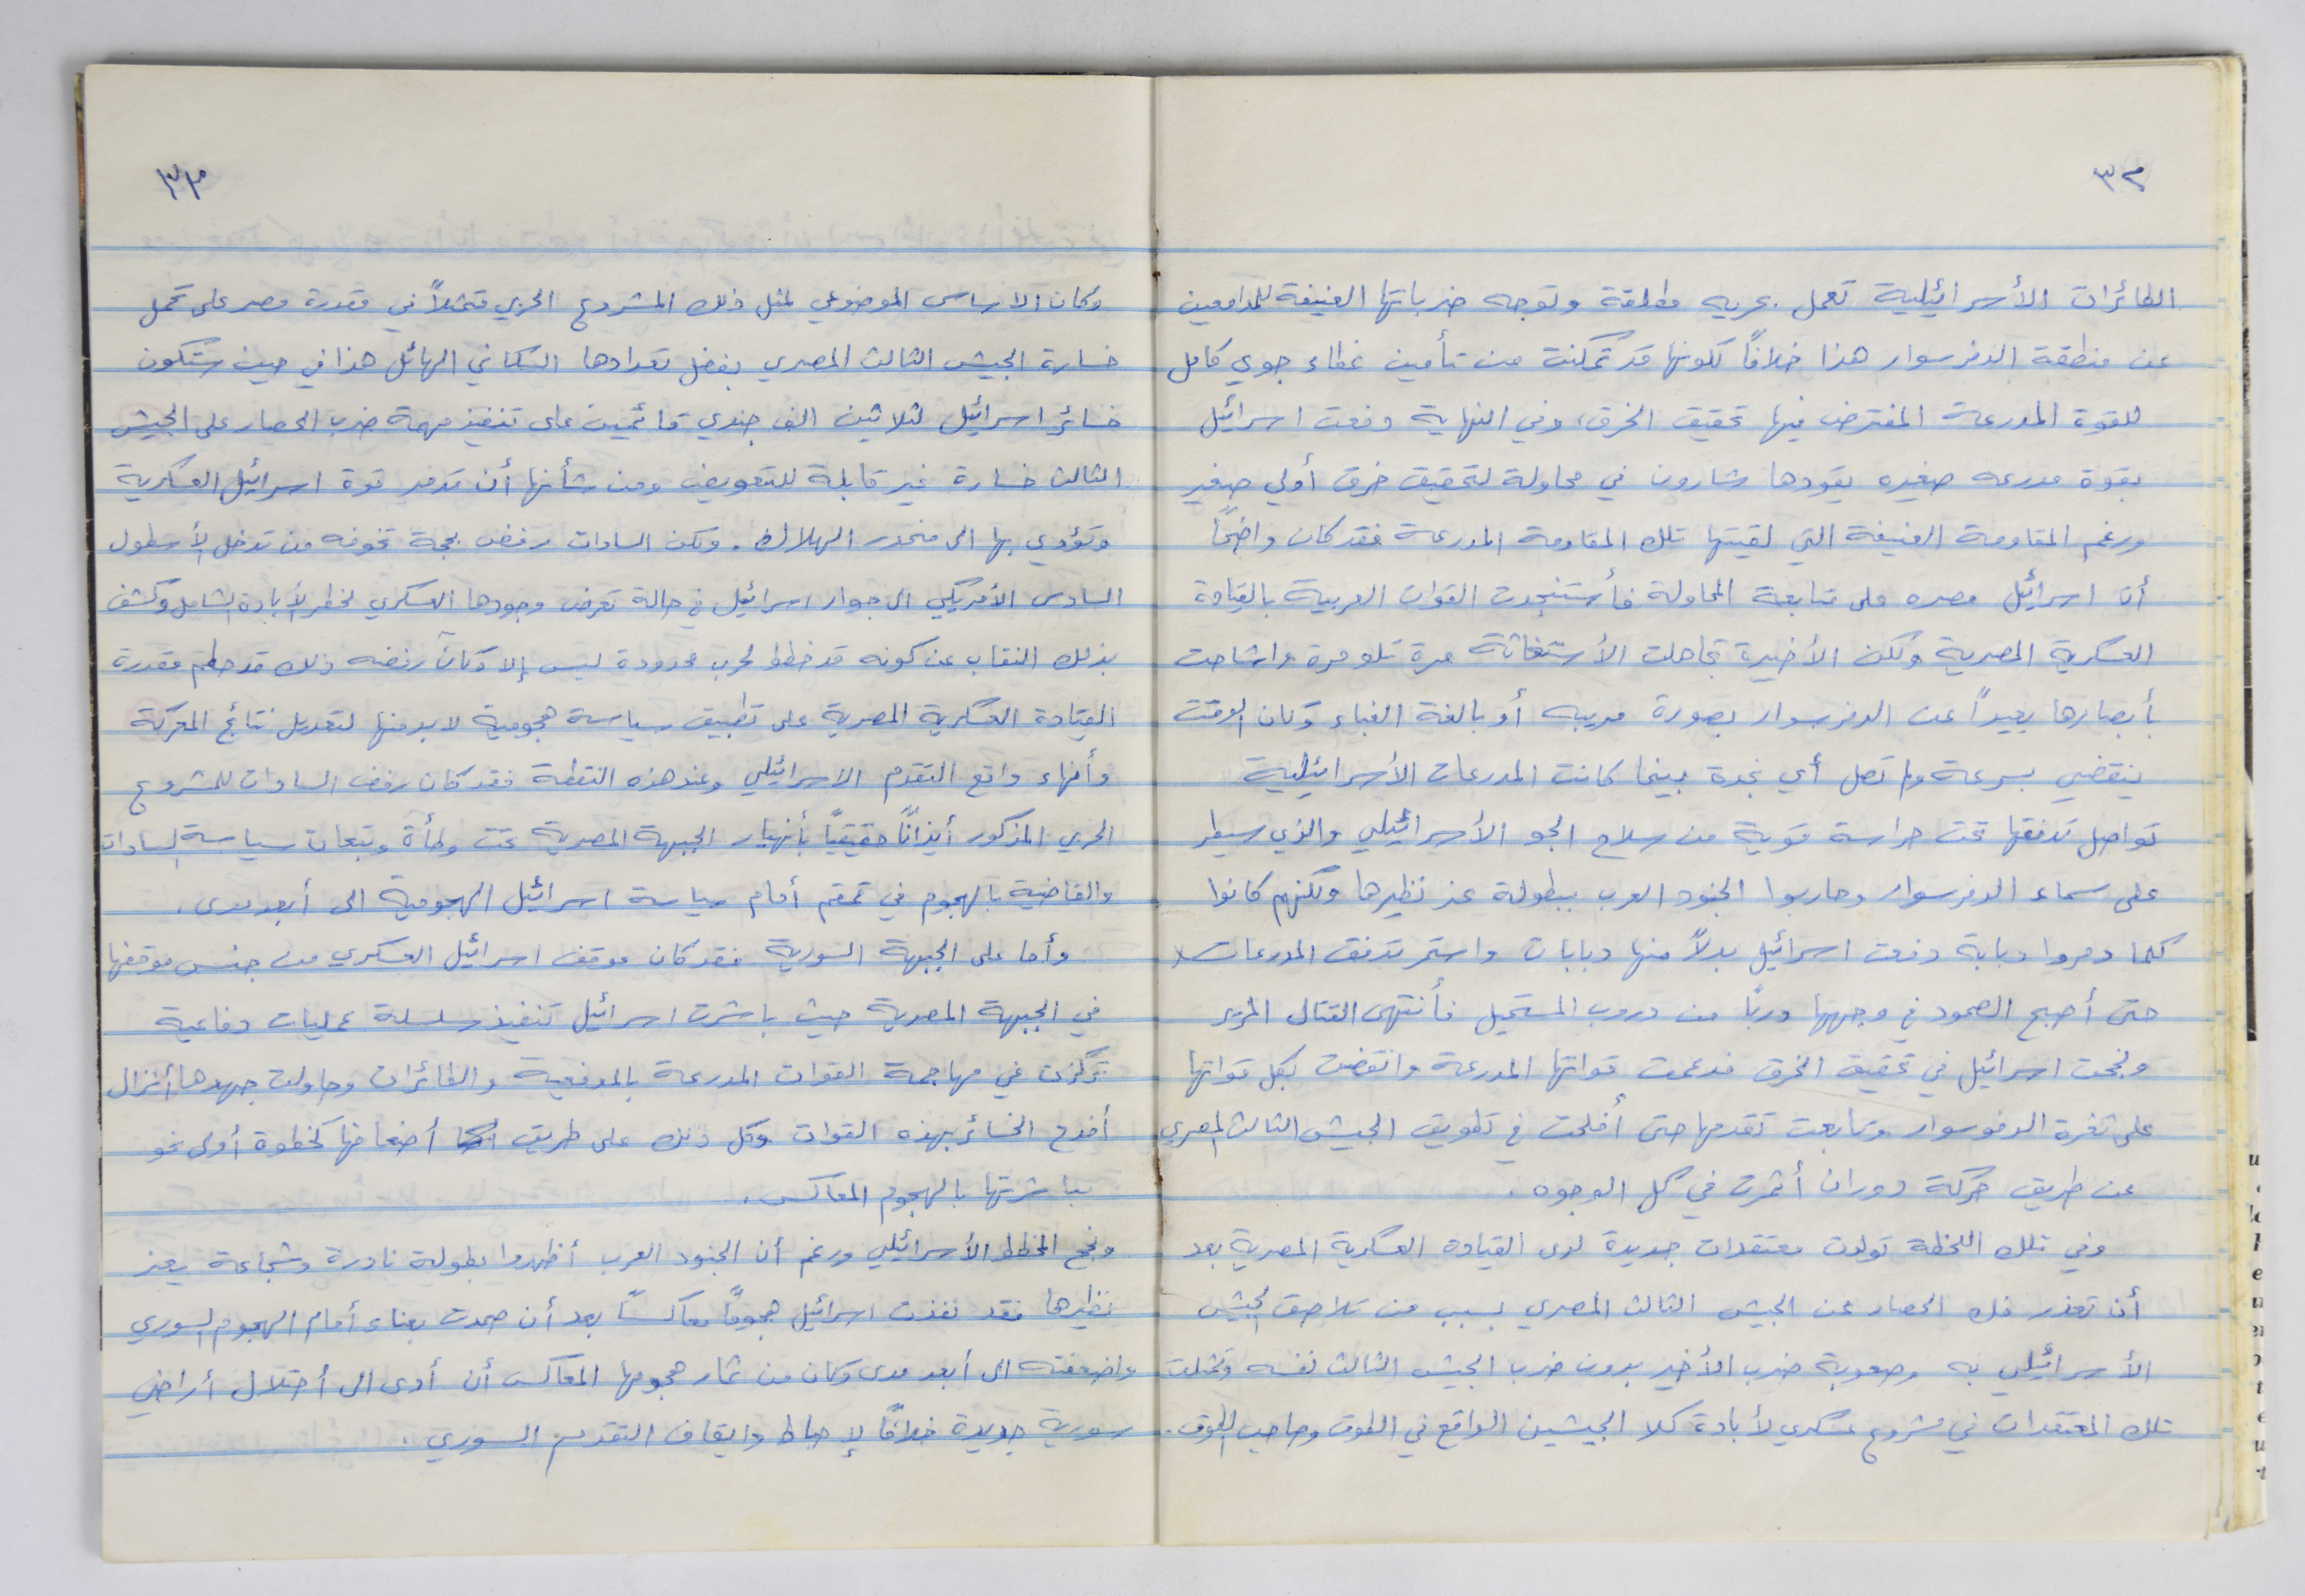 ٣٢
الطائرات الأسرائيلية تعمل بحريه مطلقة وتوجه ضرباتها العنيفة للمدافعين
عن منطقة الدفرسوار هذا خلافاً لكونها قد تمكنت من تأمين غطاء جوي كامل
للقوة المدرعة المفترض فيها تحقيق الخرق، وفي النهاية دفعت اسرائيل
بقوة مدرعه صغيره يقودها شارون في محاولة لتحقيق خرق أولي صغير
ورغم المقاومة العنيفة التي لقيتها تلك المقاومة المدرعة فقد كان واضحاً
أن اسرائيل مصره على متابعة المحاولة فأستنجدت القوات العربية بالقيادة
العسكرية المصرية ولكن الأخيرة تجاهلت الأستغاثة مرة تلو مرة واشاحت
بأبصارها بعيداً عن الدفرسوار بصورة مريبه أو بالغة الغباء وكان الوقت
ينقضي بسرعة ولم تصل أي نجدة بينما كانت المدرعات الأسرائيلية
تواصل تدفقها تحت حراسة قوية من سلاح الجو الأسرائيلي والذي سيطر
على سماء الدفرسوار وحاربوا الجنود العرب ببطولة عز نظيرها ولكنهم كانوا
كلما دمروا دبابة دفعت اسرائيل بدلاً منها دبابات واستمر تدفق المدرعات
حتى أصبح الصمود في وجهها درباً من دروب المستحيل فأنتهى القتال المرير
ونجحت اسرائيل في تحقيق الخرق فدعمت قواتها المدرعة وانقضت بكل قواتها
على ثغرة الدفرسوار وتابعت تقدمها حتى أفلحت في تطويق الجيش الثالث المصري
عن طريق حركة دوران أثمرت في كل الوجوه.
وفي تلك اللحظة تولدت معتقدات جديدة لدى القيادة العسكرية المصرية بعد
أن تعذر فك الحصار عن الجيش الثالث المصري بسبب من تلاصق الجيش
الأسرائيلي به وصعوبة ضرب الأخير بدون ضرب الجيش الثالث نفسه وتمثلت
تلك المعتقدات في مشروع عسكري لأبادة كلا الجيشين الواقع في الطوق وصاحب الطوق.
٣٣
وكان الاساس الموضوعي لمثل ذلك المشروع الحربي متمثلاً في مقدرة مصر على تحمل
خسارة الجيش الثالث المصري بفضل تعدادها السكاني الهائل هذا في حين ستكون
خسائر اسرائيل لثلاثين الف جندي قائمين على تنفيذ مهمة ضرب الحصار على الجيش
الثالث خسارة غير قابلة للتعويض ومن شأنها أن تدمر قوة اسرائيل العسكرية
وتؤدي بها الى منحدر الهلاك. ولكن السادات رفض بحجة تخوفه من تدخل الأسطول
السادس الأمريكي الى جوار اسرائيل في حالة تعرض وجودها العسكري لخطر الأبادة الشامل وكشف
بذلك النقاب عن كونه قد خطط لحرب محدودة ليس إلا وكان رفضه ذلك قد حطم مقدرة
القيادة العسكرية المصرية على تطبيق سياسة هجومية لابد منها لتعديل نتائج المعركة
وأنهاء واقع التقدم الاسرائيلي وعند هذه النقطة فقد كان رفض السادات للمشروع
الحربي المذكور أيذاناً حقيقياً بأنهيار الجبهة المصرية تحت وطأة وتبعات سياسة السادات
والقاضية بالهجوم في تقمقم أمام سياسة اسرائيل الهجومية الى أبعد مدى.
وأما على الجبهة السورية فقد كان موقف اسرائيل العسكري من جنس موقفها
في الجبهة المصرية حيث باشرت اسرائيل تنفيذ سلسلة عمليات دفاعية
تركزت في مهاجمة القوات المدرعة بالمدفعية والطائرات وحاولت جهدها أنزال
أفدح الخسائر بهذه القوات وكل ذلك على طريق أضعافها كخطوة أولى نحو
مباشرتها بالهجوم المعاكس.
ونجح المخطط الأسرائيلي ورغم أن الجنود العرب أظهروا بطولة نادرة وشجاعة يعز
نظيرها فقد نفذت اسرائيل هجوماً معاكساً بعد أن صمدت بعناء أمام الهجوم السوري
واضعفته الى أبعد مدى وكان من ثمار هجومها المعاكس أن أدى الى أحتلال أراضي
سورية جديدة خلافاً لإحباط وايقاف التقدم السوري.